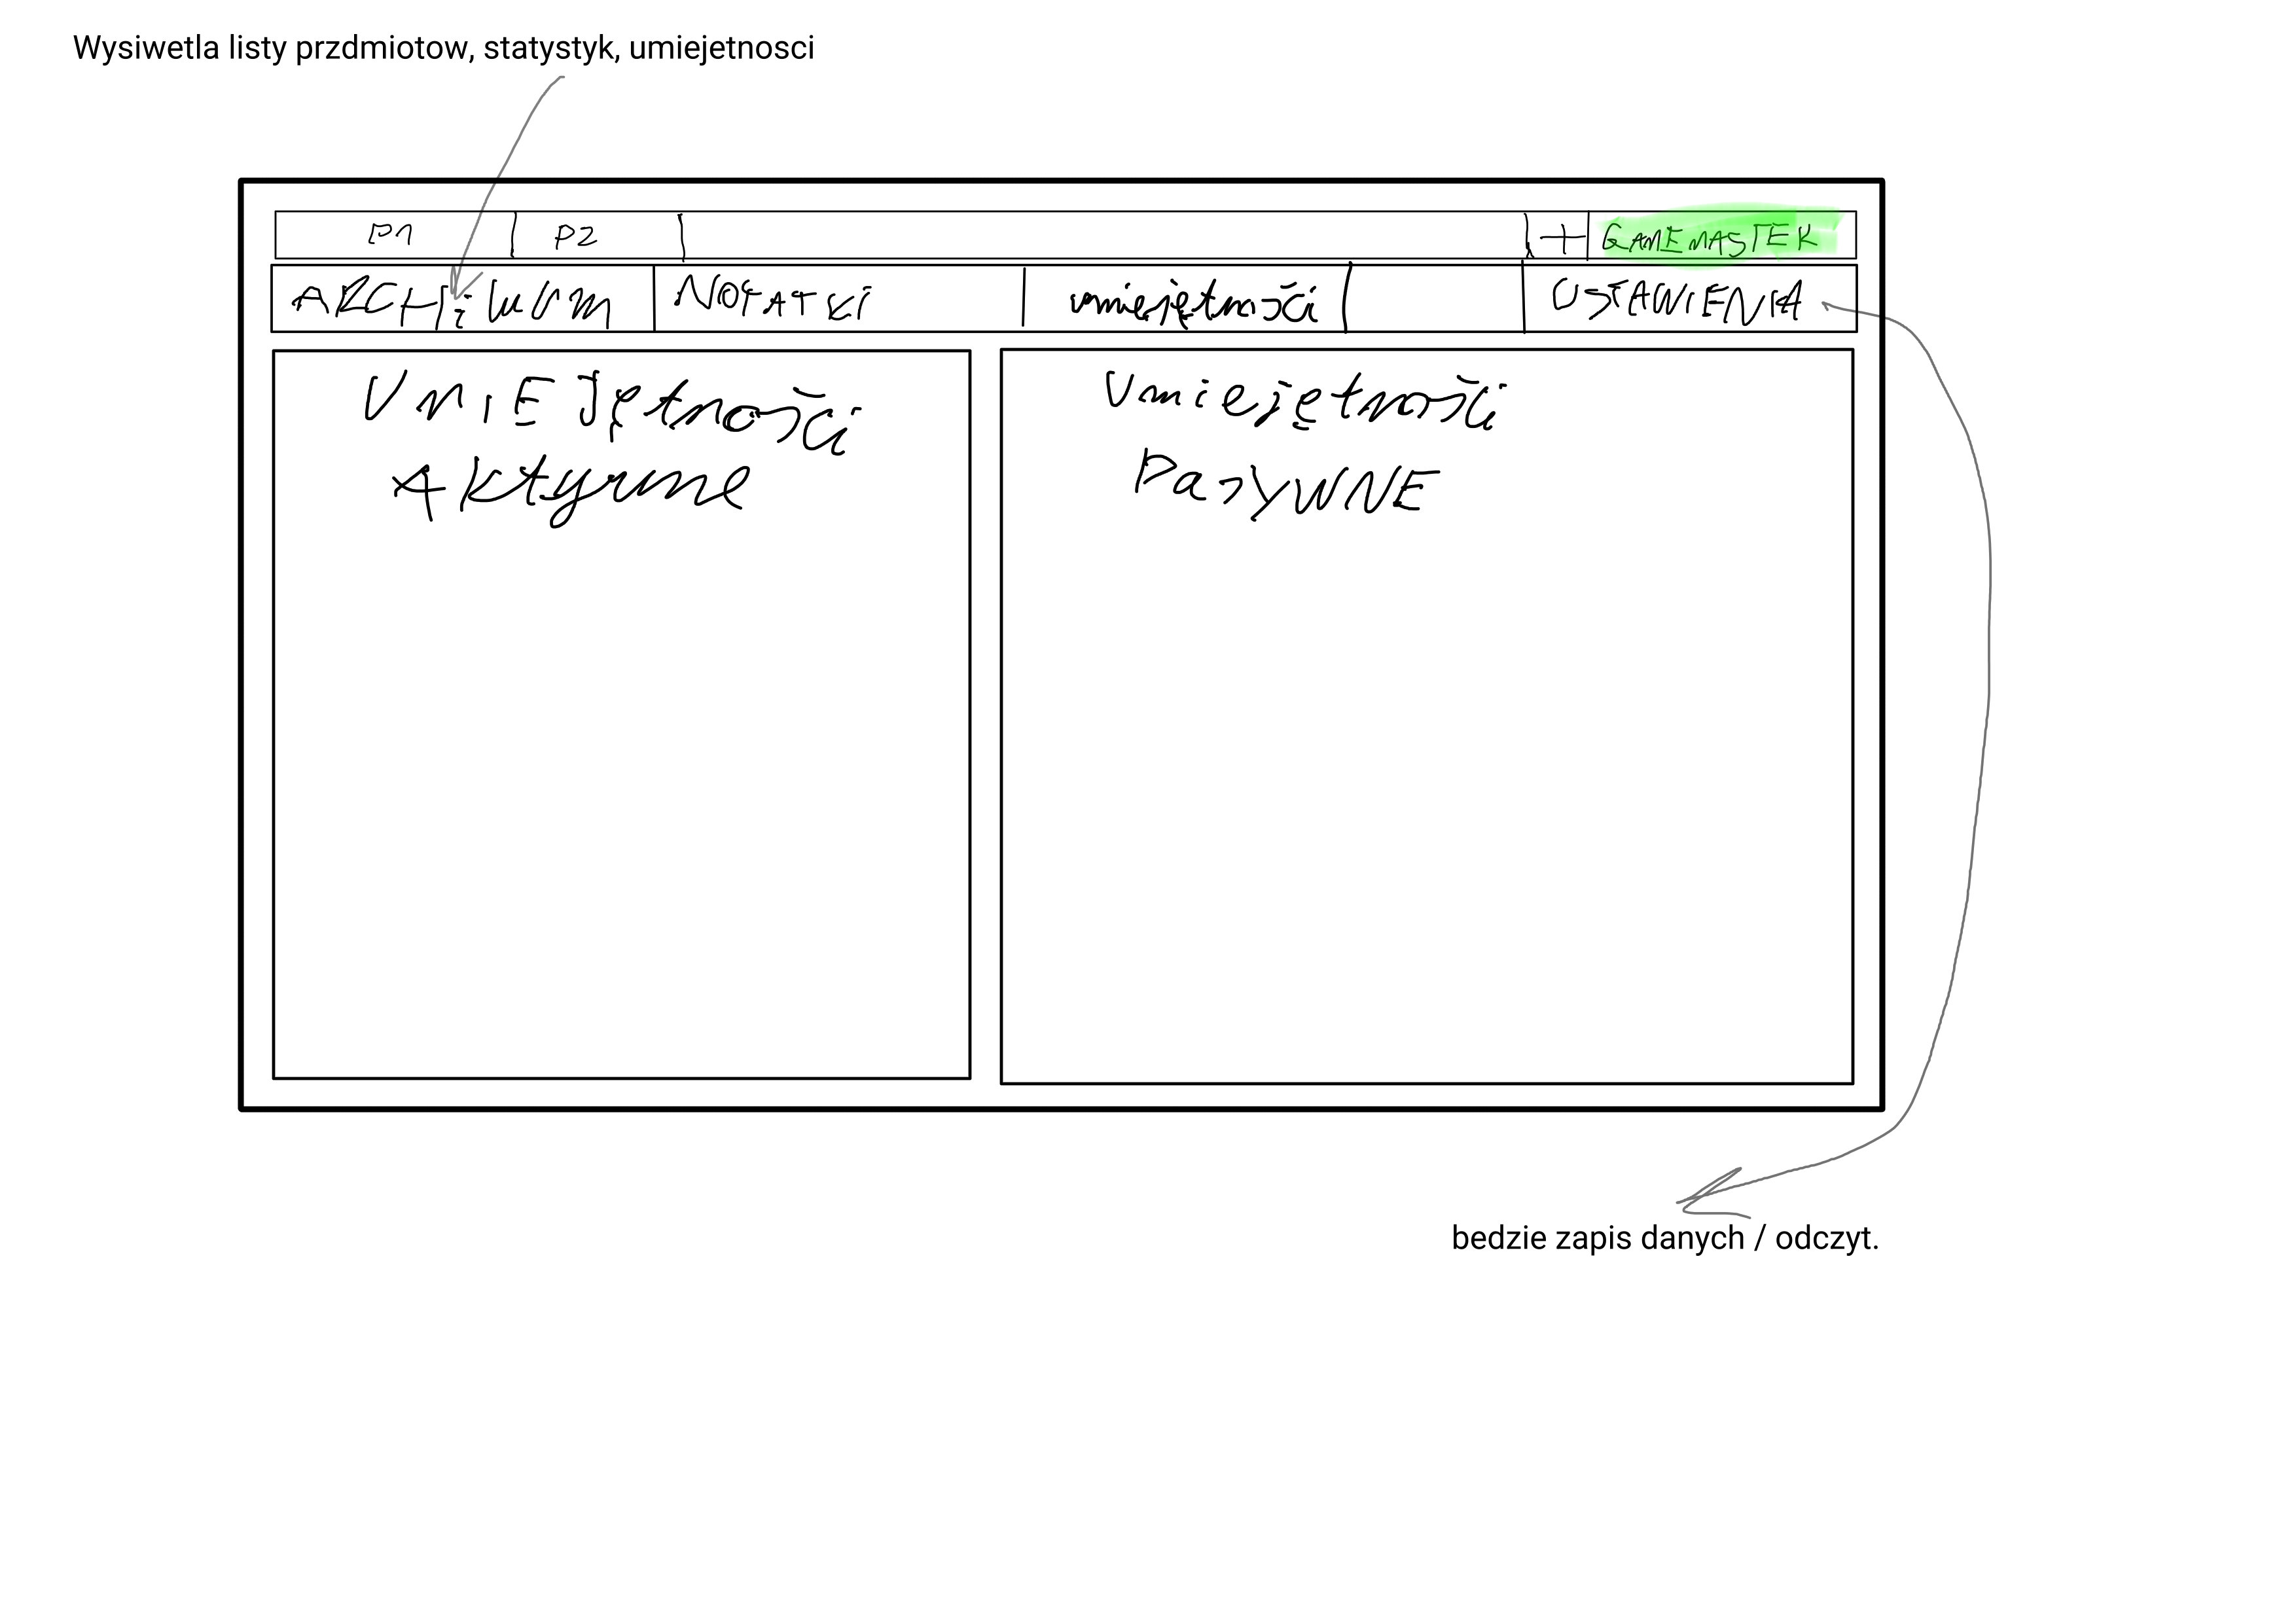 Wysiwetla listy przdmiotow, statystyk, umiejetnosci
P1 P2 + GAMEMASTER
ARCHiWUM NOTATKi umiejętności USTAWIENIA
UmIEJętności
Aktywne
Umiejętności
PasyWNE
bedzie zapis danych / odczyt.